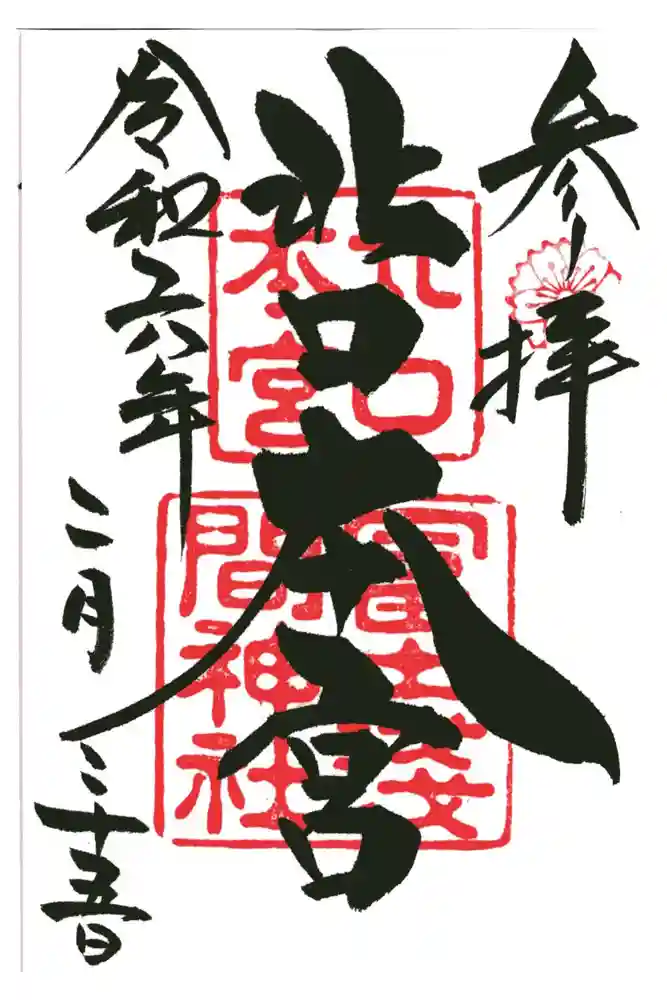 参拝
北口本宮
北口
本宮
冨士浅
間神社
令和六年
二月
二十五日